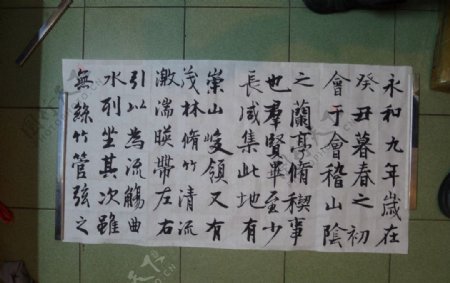 永和九年歲在
癸丑暮春之初
會于會稽山陰
之蘭亭脩稧事
也羣賢畢至少
長咸集此地有
崇山峻領又有
茂林脩竹清流
激湍暎帶左右
引以為流觴曲
水列坐其次雖
無絲竹管弦之